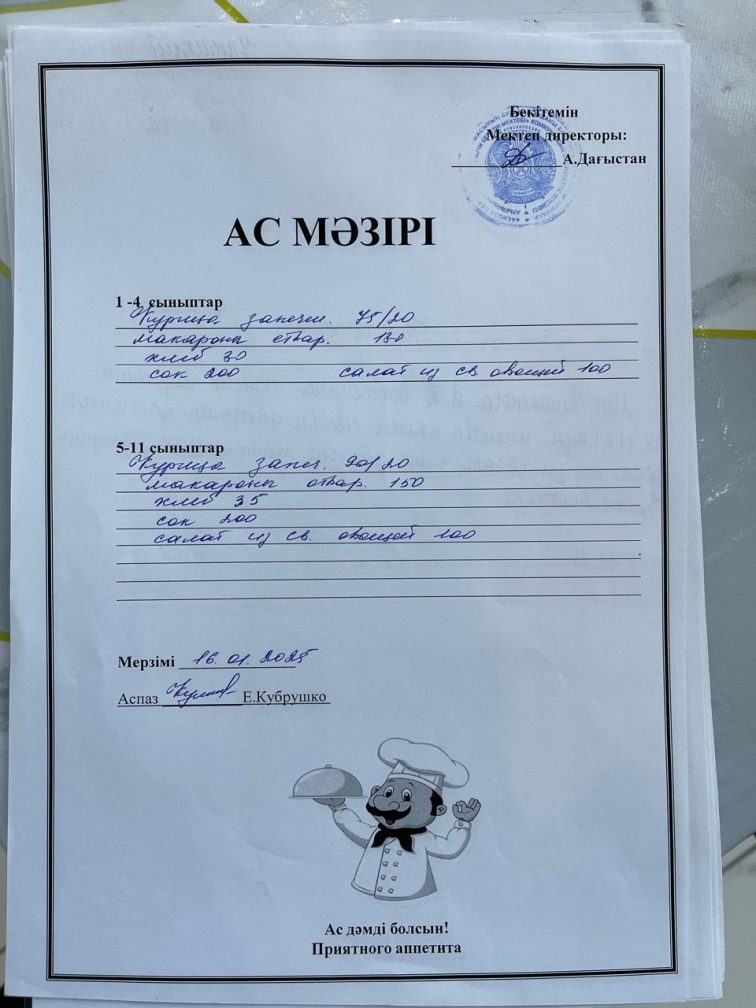 Бекітемін
Мектеп директоры:
А.Дағыстан
АС МӘЗІРІ
1 -4 сыныптар
Курица запечен. 75/20
макароны отвар. 130
хлеб 30
сок 200 салат из св. овощей 100
5-11 сыныптар
Курица запеч. 90/20
макароны отвар. 150
хлеб 35
сок 200
салат из св. овощей 100
Мерзімі 16.01.2025
Аспаз Е.Кубрушко
Ас дәмді болсын!
Приятного аппетита